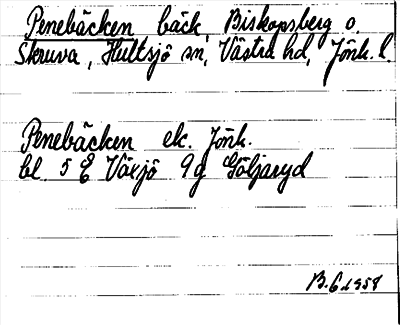 Penebäcken bäck, Biskopsberg o.
Skruva, Hultsjö sn, Västra hd, Jönk. l.
Penebäcken ek. Jönk.
bl. 5 E Växjö 9g Göljaryd
B.G.1958